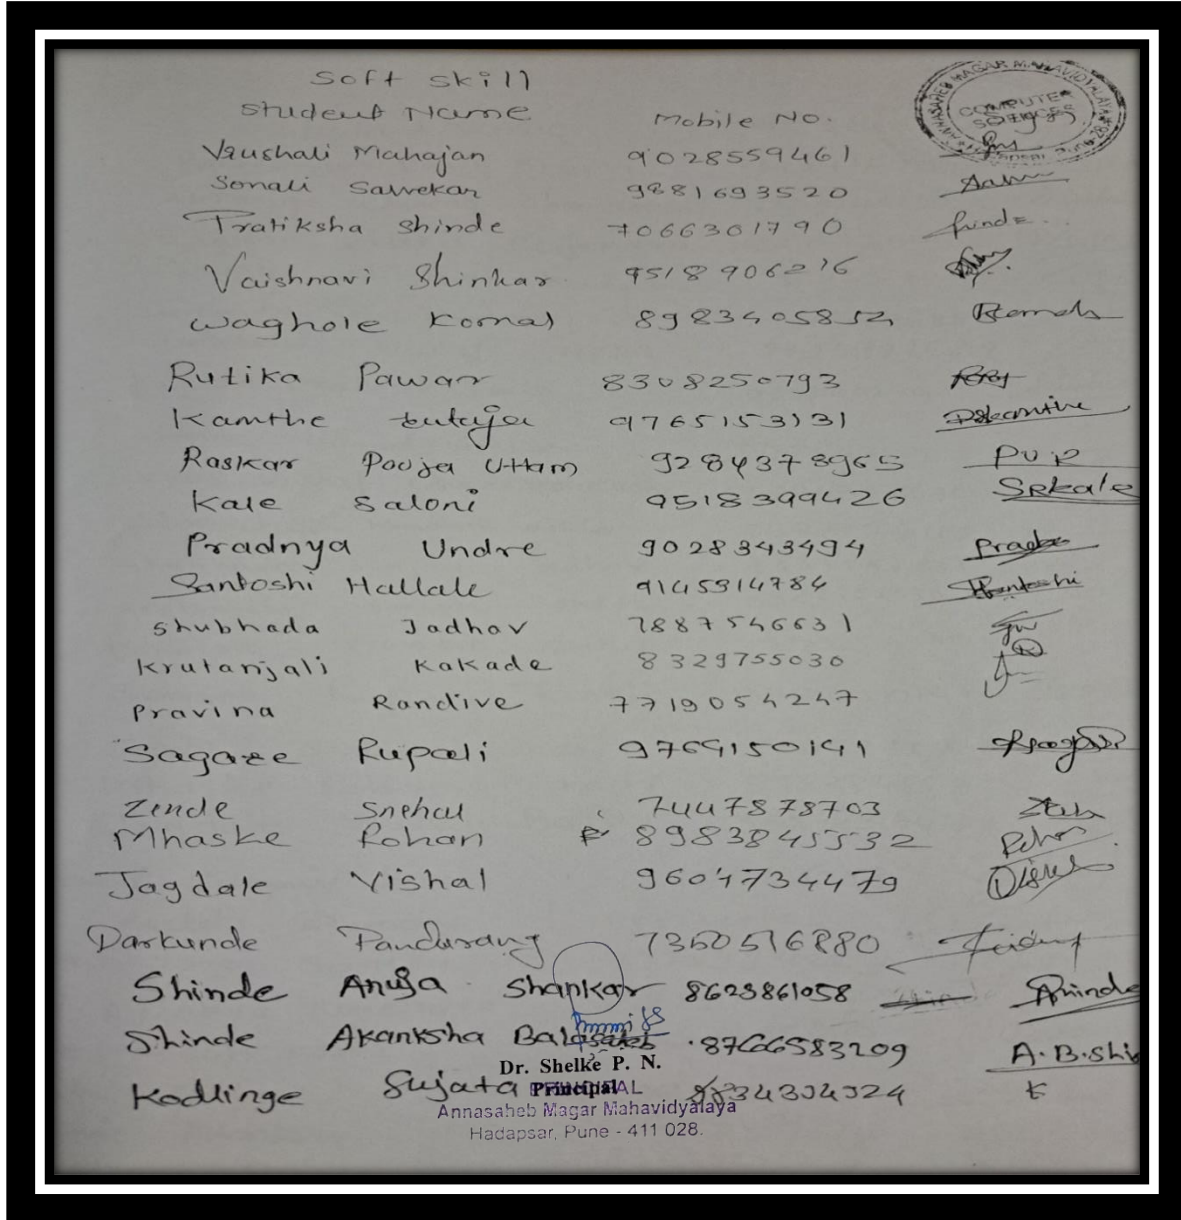 Soft Skill
Student Name Mobile No.
ANNASAHEB MAGAR MAHAVIDYALAYA
COMPUTER SCIENCES
Vaushali Mahajan 9028559461
Sonali Sawekar 9881693520
Pratiksha Shinde 7066301790 Shinde
Vaishnavi Shinkar 9518906276
Waghole Komal 8983405852 Komal
Rutika Pawar 8308250793
Kamthe 9765153131
Raskar Pooja Uttam 9284378965 PUR
Kale Saloni 9518399426 SRKale
Pradnya Undre 9028343494
Santoshi Hallale 9145314784 Santoshi
Shubhada Jadhav 7887546631
Krutanjali Kakade 8329755030
Pravina Randive 7719054247
Sagare Rupali 9764150141
Zende Snehal 7447878703
Mhaske Rohan 8983845532
Jagdale Vishal 9604734479
Darkunde Pandurang 7350516880
Shinde Anuja Shankar 8623861058 Shinde
Shinde Akanksha Balasaheb 8766583209 A.B.Shi
Dr. Shelke P. N.
Kodlinge Sujata 8834304524
Principal
PRINCIPAL
Annasaheb Magar Mahavidyalaya
Hadapsar, Pune - 411 028.